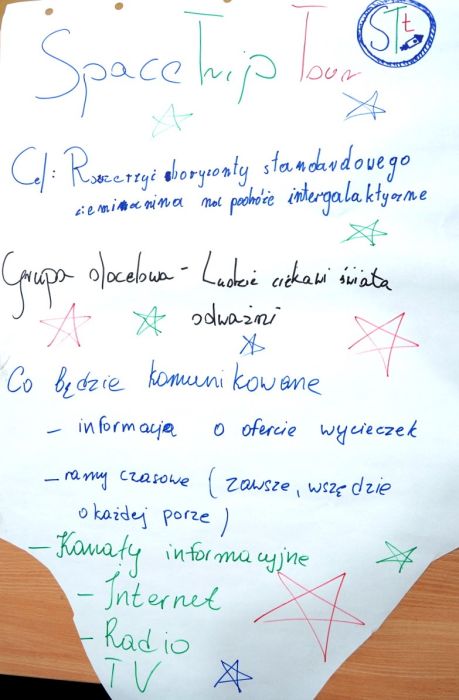 Space Trip Tour
STt
Cel: Rozszerzyć horyzonty standardowego
ziemianina na podróże intergalaktyczne
Grupa docelowa - Ludzie ciekawi świata
odważni
Co będzie komunikowane
- informacja o ofercie wycieczek
- ramy czasowe (zawsze, wszędzie
o każdej porze)
- Kanały informacyjne
- Internet
- Radio
TV